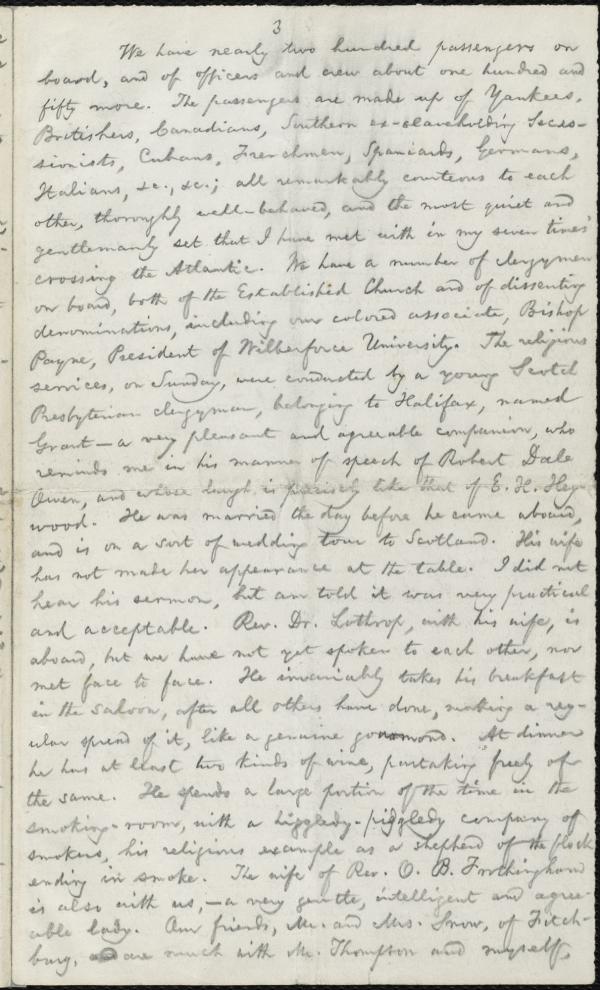 3
We have nearly two hundred passengers on
board, and of officers and crew about one hundred and
fifty more. The passengers are made up of Yankees,
Britishers, Canadians, Southern ex-slaveholding Seces-
sionists, Cubans, Frenchmen, Spaniards, Germans,
Italians, &c., &c.; all remarkably courteous to each
other, thoroughly well-behaved, and the most quiet and
gentlemanly set that I have met with in my seven times'
crossing the Atlantic. We have a number of clergymen
on board, both of the Established Church and of dissenting
denominations, including our colored associate, Bishop
Payne, President of Wilberforce University. The religious
services, on Sunday, were conducted by a young Scotch
Presbyterian clergyman, belonging to Halifax, named
Grant—a very pleasant and agreeable companion, who
reminds me in his manner of speech of Robert Dale
Owen, and whose laugh is precisely like that of E. H. Hey-
wood. He was married the day before he came aboard,
and is on a sort of wedding tour to Scotland. His wife
has not made her appearance at the table. I did not
hear his sermon, but am told it was very practical
and acceptable. Rev. Dr. Lothrop, with his wife, is
aboard, but we have not yet spoken to each other, nor
met face to face. He invariably takes his breakfast
in the saloon, after all others have done, making a reg-
ular spread of it, like a genuine gourmond. At dinner
he has at least two kinds of wine, partaking freely of
the same. He spends a large portion of the time in the
smoking-room, with a higgledy-piggledy company of
smokers, his religious example as a shepherd of the flock
ending in smoke. The wife of Rev. O. B. Frothingham
is also with us,—a very gentle, intelligent and agree-
able lady. Our friends, Mr. and Mrs. Snow, of Fitch-
burg, are much with Mr. Thompson and myself,